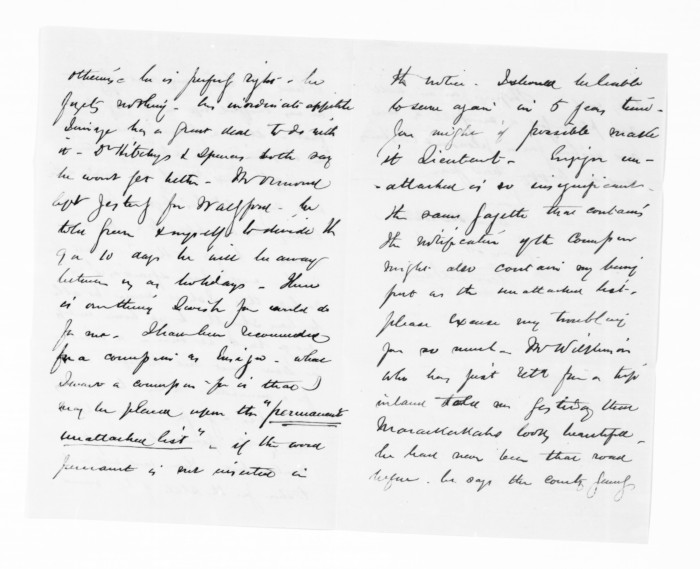 otherwise he is perfectly right - he
forgets nothing - his inordinate appetite
I imagine has a great deal to do with
it - Dr Hitchings & Spencer both say
he wont get better - Mr Ormond
left yesterday for Wallford - he
told Green & myself to divide the
9 or 10 days he will be away
between us as holidays - There
is one thing I wish you could do
for me. I have been recommended
for a commission as Ensign - what
I want a commission for is that I
may be placed upon the "permanent
unattached list" - if the word
permanent is not inserted in
the notice - I should be liable
to serve again in 5 years time -
You might if possible make
it Lieutenant - Ensign un-
-attached is so insignificant -
the same gazette that contains
the notification of the commission
might also contain my being
put on the unattached list -
please excuse my troubling
you so much - Mr Wilkinson
who has just retd from a trip
inland told me yesterday that
Maraekakaho looks beautiful -
he had never been that road
before - he says the country